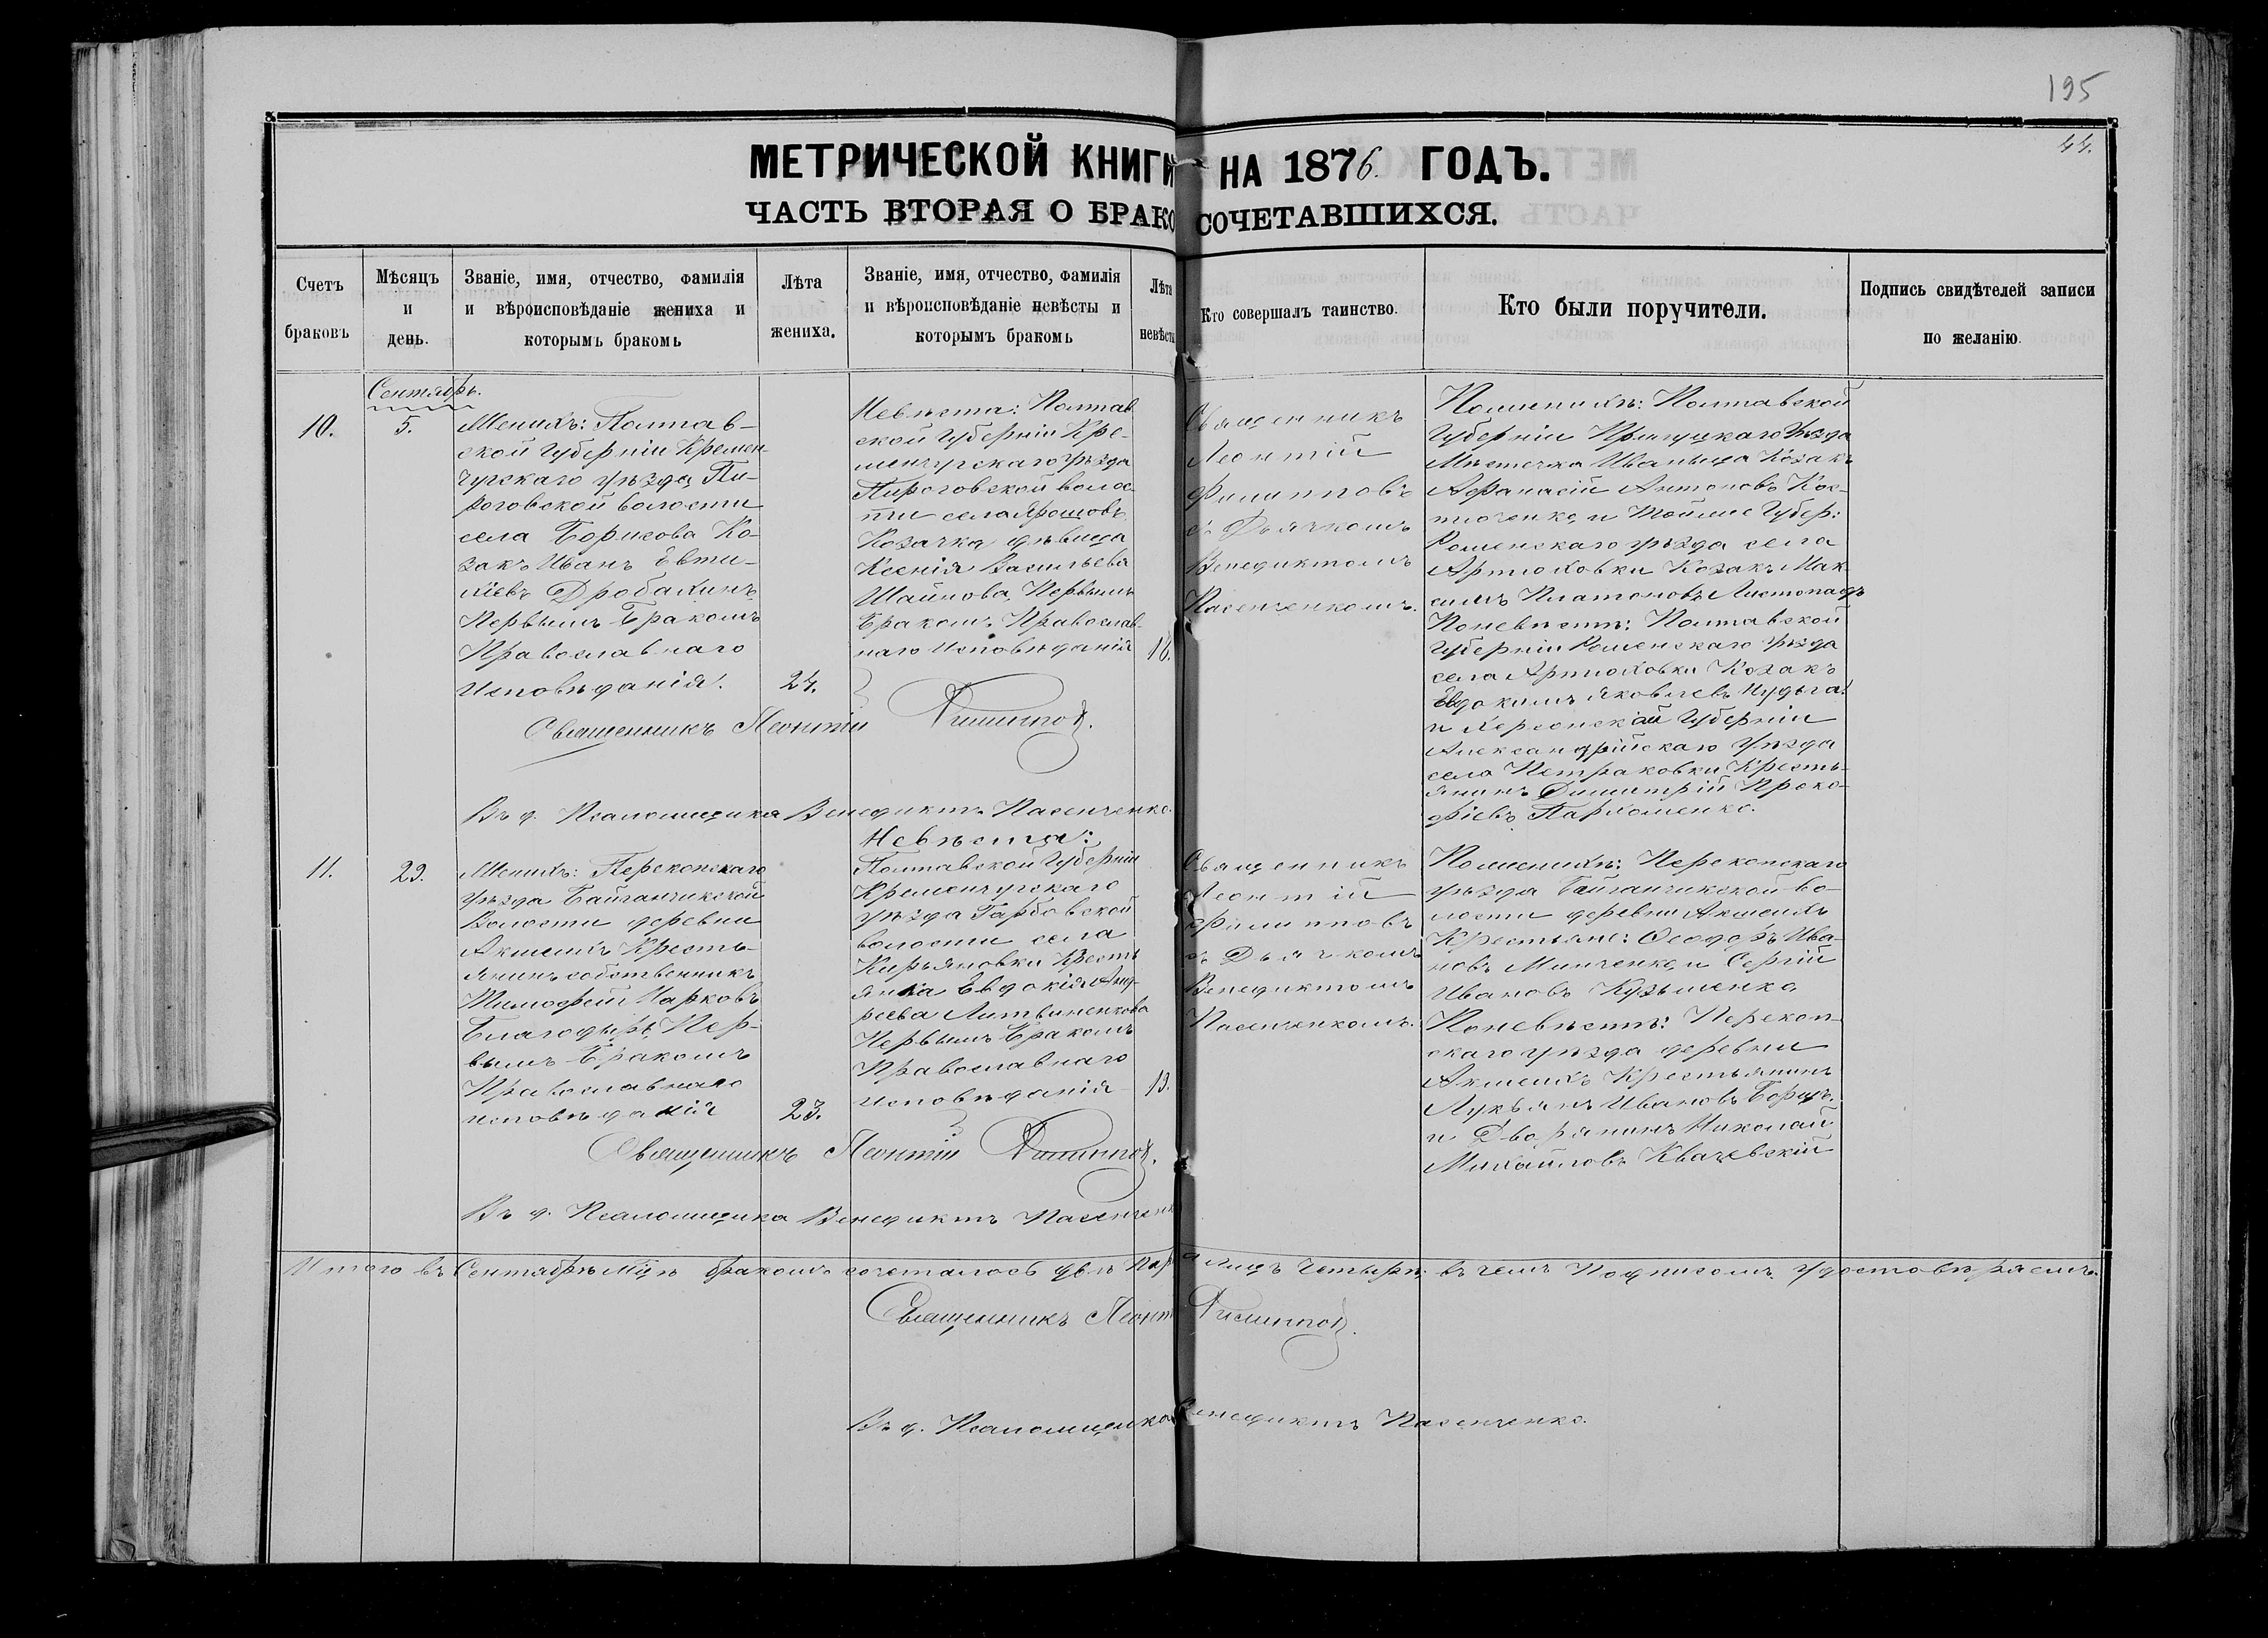 195
44.
МЕТРИЧЕСКОЙ КНИГИ НА 1876. ГОДЪ.
ЧАСТЬ ВТОРАЯ О БРАКОСОЧЕТАВШИХСЯ.
Счетъ
браковъ
Мѣсяцъ
и
день.
Званіе, имя, отчество, фамилія
и вѣроисповѣданіе жениха и
которымъ бракомъ
Лѣта
жениха.
Званіе, имя, отчество, фамилія
и вѣроисповѣданіе невѣсты и
которымъ бракомъ
Лѣта
невѣсты
Кто совершалъ таинство.
Кто были поручители.
Подпись свидѣтелей записи
по желанію.
Сентябрь.
10.
5.
Женихъ: Полтав-
ской Губерніи Кремен-
чугскаго уѣзда Пи-
роговской волости
села Борисова Ко-
закъ Иванъ Евти-
хіевъ Дробахинъ
Первымъ Бракомъ
Православнаго
Исповѣданія.
24.
Невѣста: Полтав
ской Губерніи Кре-
менчугскаго уѣзда
Пироговской волос-
ти села
Козачка дѣвица
Ксенія Васильева
Шаинова, Первымъ
Бракомъ Православ-
наго Исповѣданія
Священникъ
Леонтій
Филипповъ
съ Дьячкомъ
Венедиктомъ
Пасенченкомъ.
Поженихѣ: Полтавской
Губерніи Прилуцкаго Уѣзда
Мѣстечка Иваница Козакъ
Афанасій Антоновъ Кос-
тюченко, и Тойже Губер:
Роменскаго уѣзда села
Артюховки Козакъ Мак-
симъ Платоновъ Листопадъ
Поневѣстѣ: Полтавской
Губерніи Роменскаго Уѣзда
села Артюховки Козакъ
Евдокимъ Яковлевъ
и Херсонской Губерніи
Александрійскаго Уѣзда
села Петраковки Кресть-
янинъ Димитрій Проко-
фіевъ Пархоменко.
Священникъ Леонтій Филиппов.
Въ д. Псаломщика Венедиктъ Пасенченко.
11.
29.
Женихъ: Перекопскаго
уѣзда Байганчикской
Волости деревни
Акшеихъ Кресть-
янинъ собственникъ
Тимофей Марковъ
Благодыръ, Пер-
вымъ Бракомъ
Православнаго
исповѣданія
23.
Невѣста:
Полтавской Губерніи
Кременчугскаго
уѣзда Гарбовской
волости села
Кирьяновки Кресть
янка Евдокія Анд-
реева Литвиненкова
Первымъ Бракомъ
Православнаго
исповѣданія
Священникъ
Леонтій
Филипповъ
съ Дьячкомъ
Венедиктомъ
Пасенченкомъ.
Поженихѣ: Перекопскаго
уѣзда Байганчикской во-
лости деревни Акшеихъ
Крестьяне: Ѳеодоръ Ива-
новъ Минченко, и Сергій
Ивановъ Кузьменко
Поневѣстѣ: Перекоп-
скаго уѣзда деревни
Акшеихъ Крестьянинъ
Лукьянъ Ивановъ Борщъ.
и Дворянинъ Николай
Михайловъ Квачевскій
Священникъ Леонтій Филиппов.
Въ д. Псаломщика Венедиктъ Пасенченко
Итого въ Сентябрѣ Мцѣ бракомъ сочеталось двѣ Пары лицъ Четыре; въ чемъ Подписомъ удостовѣряемъ.
Священникъ Леонт Филиппов.
Въ д. Псаломщика Венедиктъ Пасенченко.